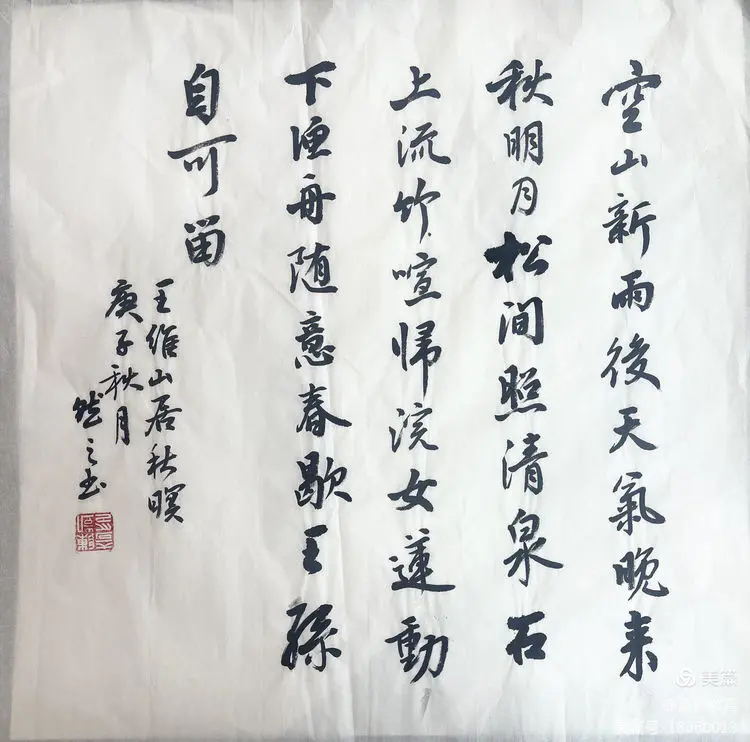 空山新雨後天氣晚来
秋明月松间照清泉石
上流竹喧帰浣女莲動
下渔舟随意春歇王孫
自可留
王维山居秋暝
庚子秋月
然之书
美篇